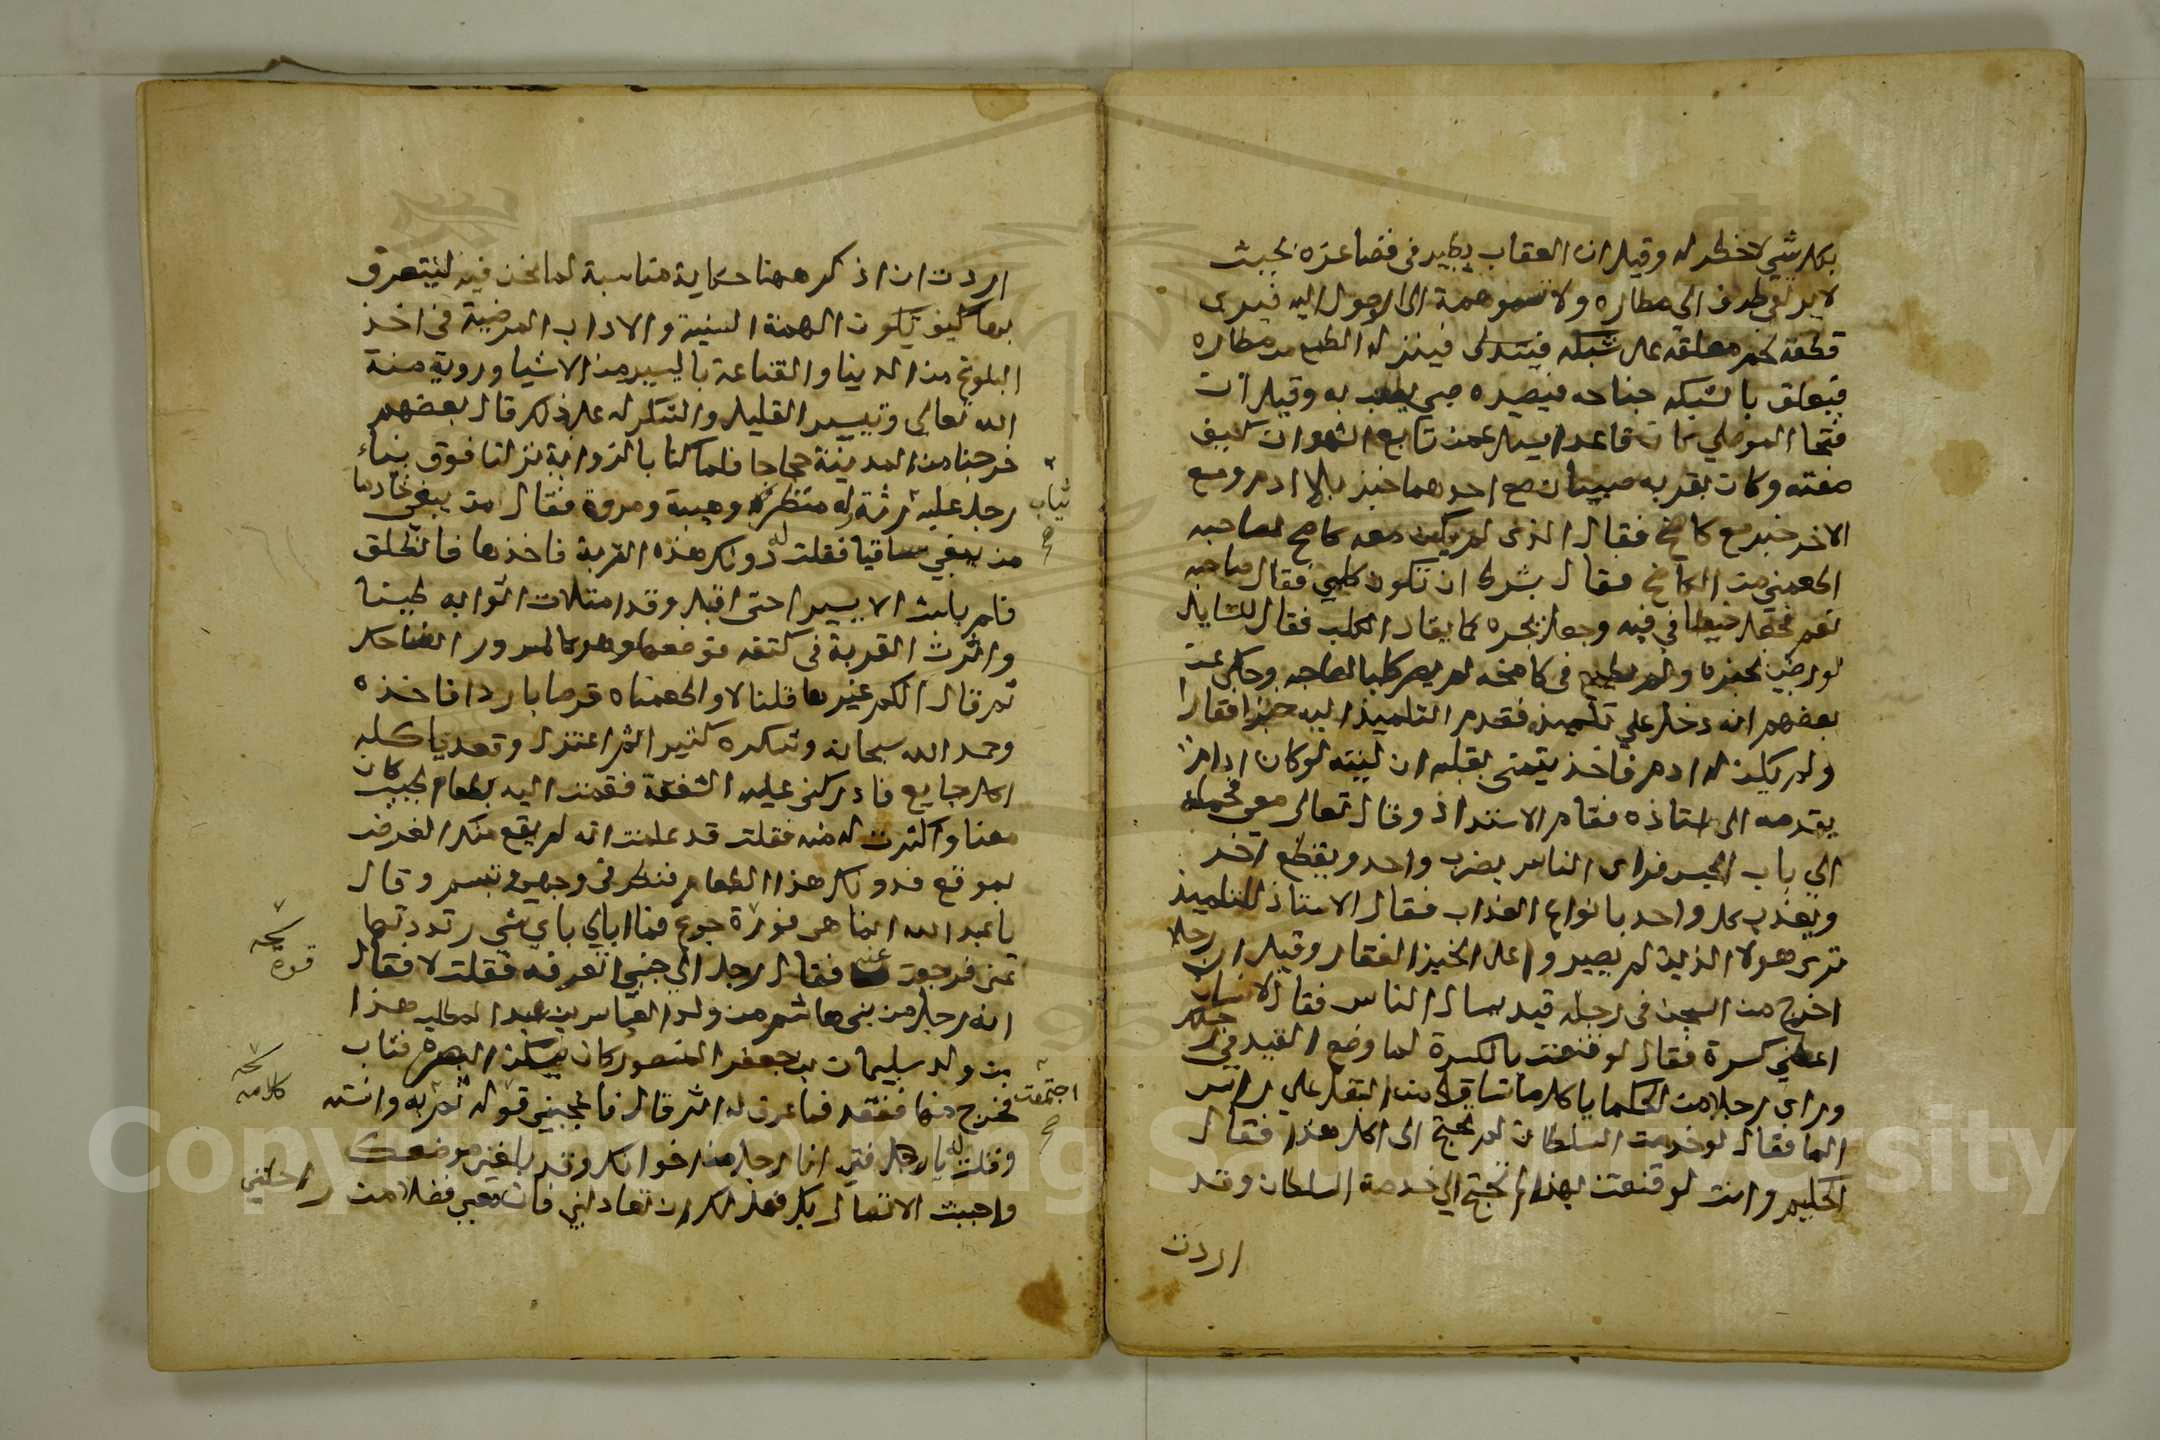 بكل شي لا خطر له وقيل ان العقاب يطير في فضا عزه بحيث
لا يرتقي طرف الى مطاره ولا تسمو همة الى الوصول اليه فيرى
قطعة لحم معلقة على شبكه فيتدلى فينزله الطمع من مطاره
فيعلق بالشبكه جناحه فيصيده صبي يلعب به وقيل ان
فتحا الموصلي كان قاعدا يسال عمن تابع الشهوات كيف
صفته وكان بقربه صبيان مع احدهما خبز بلا ادم ومع
الاخر خبز مع كامخ فقال الذي لم يكن معه كامخ لصاحبه
اطعمني من الكامخ فقال بشرط ان تكون كلبي فقال صاحبه
نعم فجعل خيطا في فيه وجعل يجره كما يقاد الكلب فقال للسايل
لو رضي بخبزه ولم يطمع في كامخه لم يصر كلبا لصاحبه وحكي عن
بعضهم انه دخل على تلميذ فقدم التلميذ اليه خبزا قفارا
ولم يكن له ادم فاخذ يتمنى بقلبه ان ليته لو كان اداما
يقدمه الى استاذه فقام الاستاذ وقال تعالى معي فحمله
الى باب الحبس فراى الناس يضرب واحد ويقطع اخر
ويعذب كل واحد بانواع العذاب فقال الاستاذ للتلميذ
ترى هولا الذين لم يصبروا على الخبز القفار وقيل ان رجلا
اخرج من السجن في رجله قيد يسال الناس فقال لانسان
اعطني كسرة فقال لو قنعت بالكسرة لما وضع القيد في رجلك
وراى رجل من الحكما ياكل ما تساقط من البقل على راس
الما فقال لو خدمت السلطان لم تحتج الى اكل هذا فقال
الحكيم وانت لو قنعت بهذا لم تحتج الى خدمة السلطان وقد
اردت
اردت ان اذكر ههنا حكاية مناسبة لما نحن فيه ليتعرف
بها كيف تكون الهمة السنية والاداب المرضية في اخذ
البلوغ من الدنيا والقناعة باليسير من الاشيا وروية منة
الله تعالى وتيسير القليل والشكر له على ذلك قال بعضهم
خرجنا من المدينة حجاجا فلما كنا بالزوابة نزلنا فوق بناء
رجل عليه رثة له منظر وهيبة ومروة فقال من يبغي خادما
ثياب
من يبغي ساقيا فقلت له دونك هذه القربة فاخذها فانطلق
فلم يلبث الا يسيرا حتى اقبل وقد امتلات اثوابه طينا
واثرت القربة في كتفه فوضعها وهو كالمسرور الضاحك
ثم قال الكم غيرها قلنا لا واطعمناه قرصا باردا فاخذه
وحمد الله سبحانه وشكره كثيرا ثم اعتزل وقعد ياكله
اكل جايع فادركني عليه الشفقة فقمت اليه بطعام طيب كان
معنا واكثرت له منه فقلت قد علمت انه لم يقع منك القرص
بموقع فدونك هذا الطعام فنظر في وجهي وتبسم وقال
يا عبد الله انما هي فورة جوع فما ابالي باي شي رددتها
نسخه
قوة
عني فرجعت عنه فقال رجل الى جنبي اتعرفه فقلت لا فقال
انه رجل من بني هاشم من ولد العباس بن عبد المطلب هذا
من ولد سليمان بن جعفر المنصور كان يسكن البصرة فتاب
نسخه
كلامه
فخرج منها ففقد فما عرف له اثر قال فاعجبني قوله ثم به وانسته
اجتمعت
وقلت له يا رجل فتى انا رجل من اخوانك وقد بلغني موضعك
واحببت الاتصال بك فهل لك ان تعادلني فان معي فضلا من راحلتي